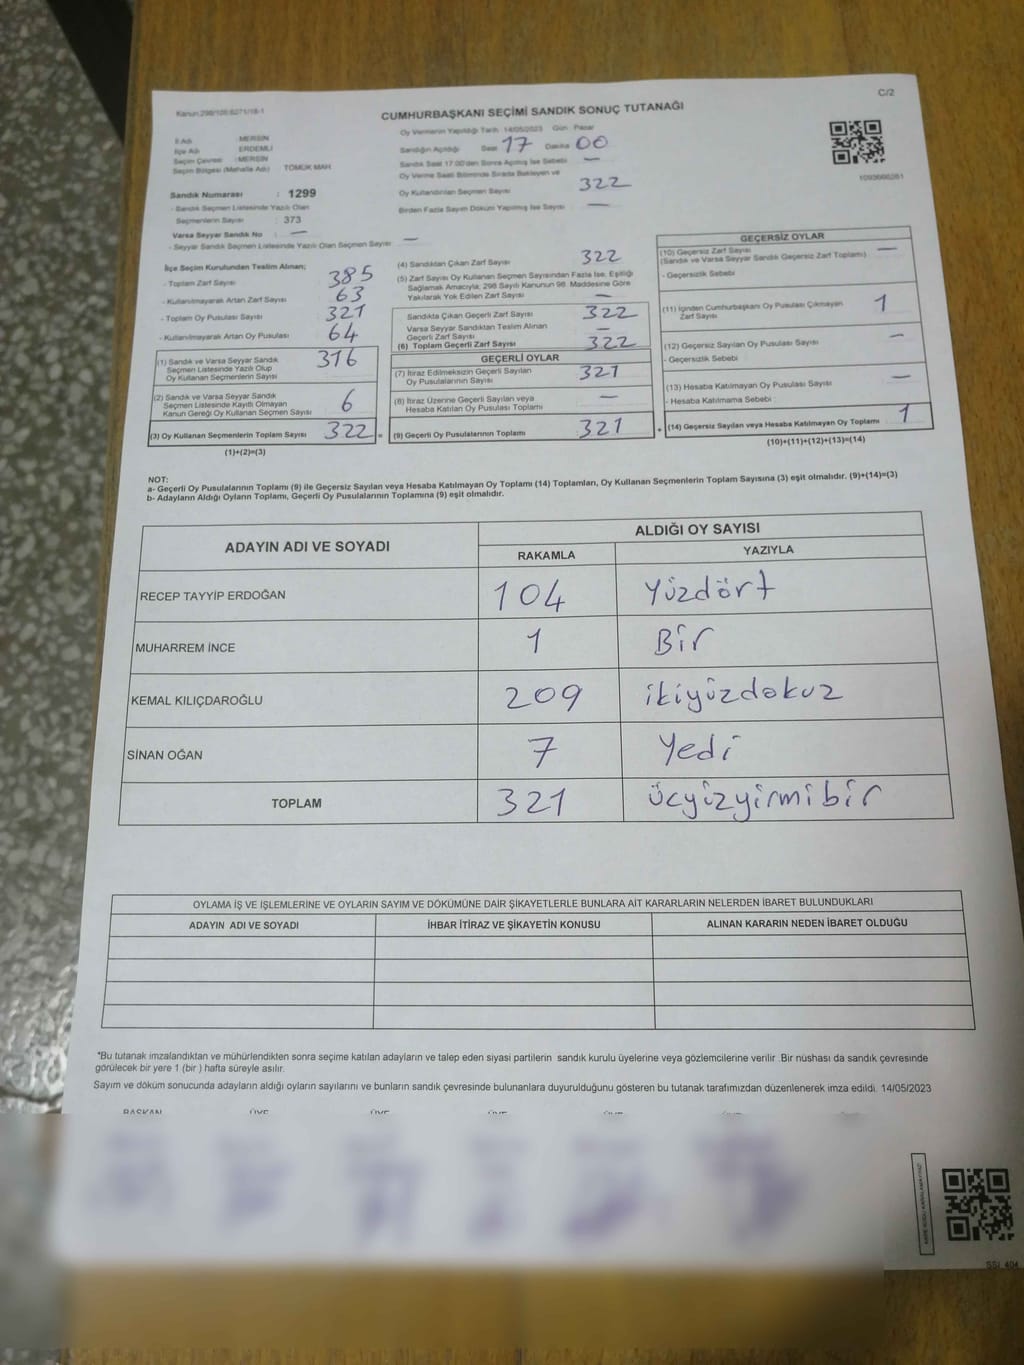 Kanun:298/105:6271/18-1
C/2
CUMHURBAŞKANI SEÇİMİ SANDIK SONUÇ TUTANAĞI
İl Adı : MERSİN
İlçe Adı : ERDEMLİ
Seçim Çevresi : MERSİN
Seçim Bölgesi (Mahalle Adı) : TÖMÜK MAH.
Sandık Numarası : 1299
- Sandık Seçmen Listesinde Yazılı Olan
Seçmenlerin Sayısı : 373
Varsa Seyyar Sandık No : —
- Seyyar Sandık Seçmen Listesinde Yazılı Olan Seçmen Sayısı : —
Oy Vermenin Yapıldığı Tarih: 14/05/2023 Gün : Pazar
Sandığın Açıldığı Saat 17 Dakika 00
Sandık Saat 17:00'den Sonra Açılmış İse Sebebi —
Oy Verme Saati Bitiminde Sırada Bekleyen ve
Oy Kullandırılan Seçmen Sayısı 322
Birden Fazla Sayım Döküm Yapılmış İse Sayısı —
İlçe Seçim Kurulundan Teslim Alınan;
- Toplam Zarf Sayısı : 385
- Kullanılmayarak Artan Zarf Sayısı 63
- Toplam Oy Pusulası Sayısı : 321
- Kullanılmayarak Artan Oy Pusulası : 64
(1) Sandık ve Varsa Seyyar Sandık
Seçmen Listesinde Yazılı Olup
Oy Kullanan Seçmenlerin Sayısı 316
(2) Sandık ve Varsa Seyyar Sandık
Seçmen Listesinde Kayıtlı Olmayan
Kanun Gereği Oy Kullanan Seçmen Sayısı 6
(3) Oy Kullanan Seçmenlerin Toplam Sayısı 322 =
(1)+(2)=(3)
(4) Sandıktan Çıkan Zarf Sayısı 322
(5) Zarf Sayısı Oy Kullanan Seçmen Sayısından Fazla İse, Eşitliği
Sağlamak Amacıyla, 298 Sayılı Kanunun 98. Maddesine Göre
Yakılarak Yok Edilen Zarf Sayısı —
Sandıkta Çıkan Geçerli Zarf Sayısı 322
Varsa Seyyar Sandıktan Teslim Alınan
Geçerli Zarf Sayısı —
(6) Toplam Geçerli Zarf Sayısı 322
GEÇERLİ OYLAR
(7) İtiraz Edilmeksizin Geçerli Sayılan
Oy Pusulalarının Sayısı : 321
(8) İtiraz Üzerine Geçerli Sayılan veya
Hesaba Katılan Oy Pusulası Toplamı —
(9) Geçerli Oy Pusulalarının Toplamı : 321 +
GEÇERSİZ OYLAR
(10) Geçersiz Zarf Sayısı
(Sandık ve Varsa Seyyar Sandık Geçersiz Zarf Toplamı) —
- Geçersizlik Sebebi
(11) İçinden Cumhurbaşkanı Oy Pusulası Çıkmayan
Zarf Sayısı 1
(12) Geçersiz Sayılan Oy Pusulası Sayısı —
- Geçersizlik Sebebi
(13) Hesaba Katılmayan Oy Pusulası Sayısı —
- Hesaba Katılmama Sebebi
(14) Geçersiz Sayılan veya Hesaba Katılmayan Oy Toplamı 1
(10)+(11)+(12)+(13)=(14)
NOT:
a- Geçerli Oy Pusulalarının Toplamı (9) ile Geçersiz Sayılan veya Hesaba Katılmayan Oy Toplamı (14) Toplamları, Oy Kullanan Seçmenlerin Toplam Sayısına (3) eşit olmalıdır. (9)+(14)=(3)
b- Adayların Aldığı Oyların Toplamı, Geçerli Oy Pusulalarının Toplamına (9) eşit olmalıdır.
ADAYIN ADI VE SOYADI ALDIĞI OY SAYISI
RAKAMLA YAZIYLA
RECEP TAYYİP ERDOĞAN 104 Yüzdört
MUHARREM İNCE 1 Bir
KEMAL KILIÇDAROĞLU 209 ikiyüzdokuz
SİNAN OĞAN 7 Yedi
TOPLAM 321 üçyüzyirmibir
OYLAMA İŞ VE İŞLEMLERİNE VE OYLARIN SAYIM VE DÖKÜMÜNE DAİR ŞİKAYETLERLE BUNLARA AİT KARARLARIN NELERDEN İBARET BULUNDUKLARI
ADAYIN ADI VE SOYADI İHBAR İTİRAZ VE ŞİKAYETİN KONUSU ALINAN KARARIN NEDEN İBARET OLDUĞU
*Bu tutanak imzalandıktan ve mühürlendikten sonra seçime katılan adayların ve talep eden siyasi partilerin sandık kurulu üyelerine veya gözlemcilerine verilir .Bir nüshası da sandık çevresinde
görülecek bir yere 1 (bir ) hafta süreyle asılır.
Sayım ve döküm sonucunda adayların aldığı oyların sayılarını ve bunların sandık çevresinde bulunanlara duyurulduğunu gösteren bu tutanak tarafımızdan düzenlenerek imza edildi. 14/05/2023
BAŞKAN ÜYE ÜYE ÜYE ÜYE ÜYE ÜYE
SSI_404